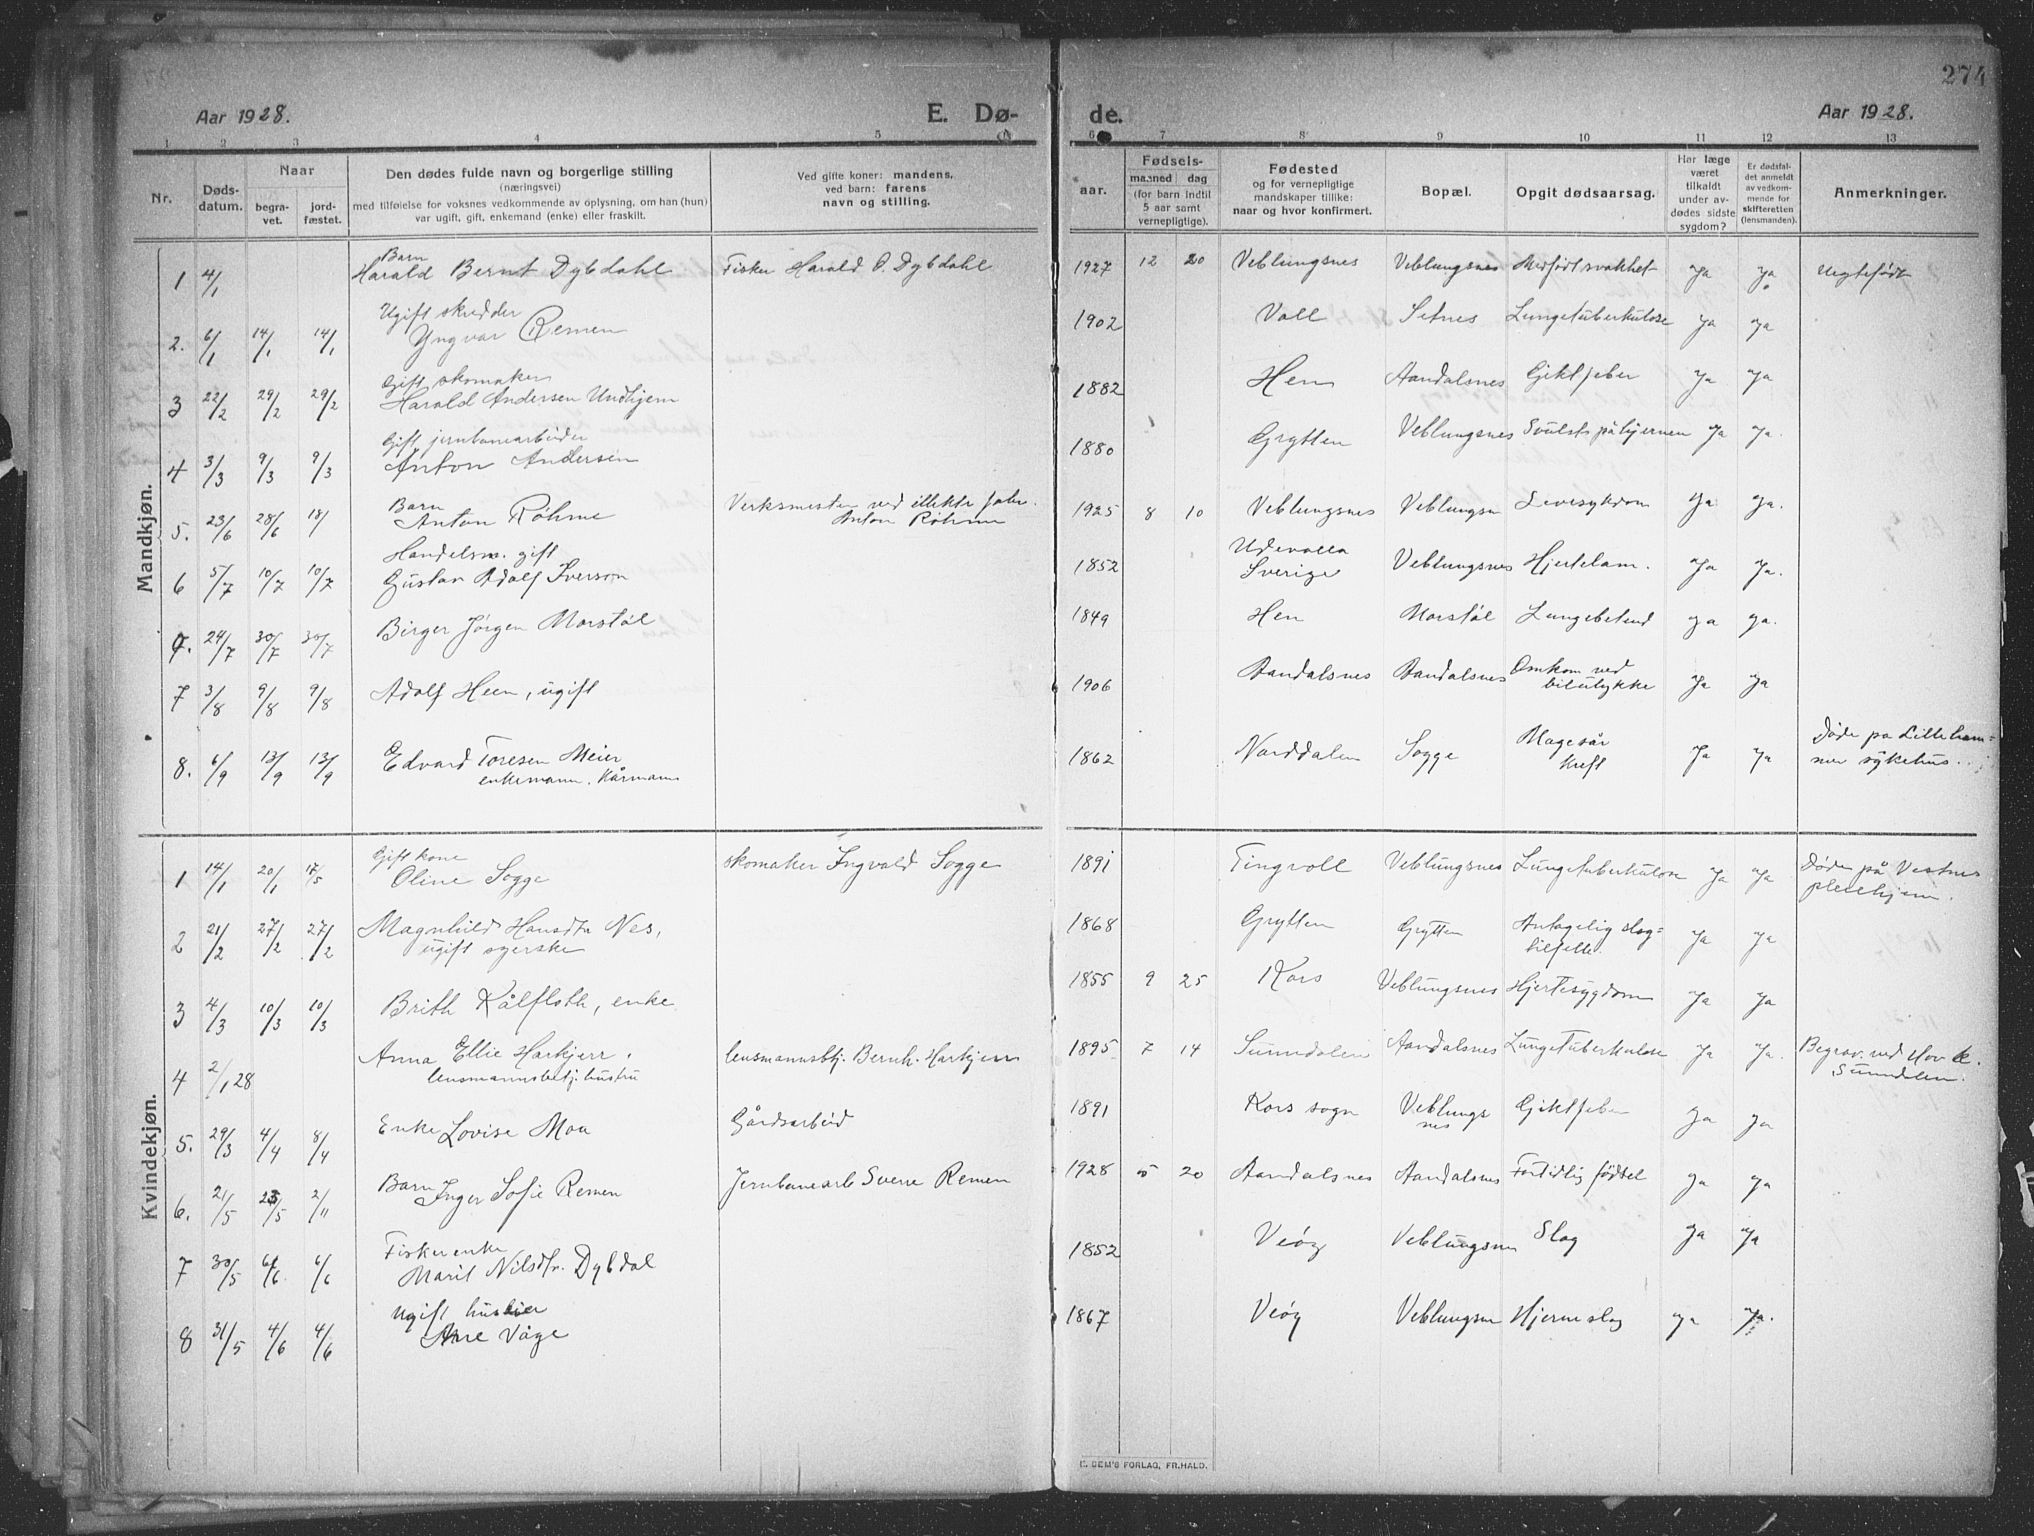 274
Aar 1928. E. Dø- de. Aar 1928.
1 2 3 4 5 6 7 8 9 10 11 12 13
Nr.
Døds-
datum.
Naar
begra-
vet.
jord-
fæstet.
Den dødes fulde navn og borgerlige stilling
(næringsvei)
med tilføielse for voksnes vedkommende av oplysning, om han (hun)
var ugift, gift, enkemand (enke) eller fraskilt.
Ved gifte koner: mandens,
ved barn: farens
navn og stilling.
aar.
Fødsels-
maaned dag
(for barn indtil
5 aar samt
vernepligtige).
Fødested
og for vernepligtige
mandskaper tillike:
naar og hvor konfirmert.
Bopæl.
Opgit dødsaarsag.
Har læge
været
tilkaldt
under av-
dødes sidste
sygdom?
Er dødsfal-
det anmeldt
av vedkom-
mende for
skifteretten
(lensmanden).
Anmerkninger.
Mandkjøn.
Barn
1 4/1 Harald Bernt Dybdahl Fisker Harald O. Dybdahl 1927 12 20 Veblungsnes Veblungsnes Medfødt svakhet ja ja Uegtefødt
Ugift skredder
2. 6/1 14/1 14/1 Yngvar Remen 1902 Voll Setnes Lungetuberkulose ja ja
Gift skomaker
3 22/2 29/2 29/2 Harald Andersen Undhjem 1882 Hen Aandalsnes Giktfeber ja ja
Gift jernbanearbeider
4 3/3 9/3 9/3 Anton Andersen 1880 Grytten Veblungsnes Svulst på hjernen ja ja.
Barn Verksmester ved
5. 23/6 28/6 18/ Anton Røhme Anton Røhme 1925 8 10 Veblungsnes Veblungsn Leversykdom ja ja.
Handelsm. gift Udevalla
6 5/7 10/7 10/7 Gustav Adolf Iverson 1852 Sverige Veblungsnes Hjertelam. ja ja.
7. 24/7 30/7 30/7 Birger Jørgen Morstøl 1849 Hen Morstøl Lungebetend ja ja.
7 3/8 9/8 9/8 Adolf Heen, ugift 1906 Aandalsnes Aandalsnes Omkom ved
bilulykke ja ja
8. 6/9 13/9 13/9 Edvard Toresen Meier 1862 Norddalen Sogge Magesår ja ja Døde pa Lilleham=
enkemann. Kårmann kreft mer sykehus.
Kvindekjøn.
Gift kone
1 14/1 20/1 17/5 Oline Sogge skomaker Ingvald Sogge 1891 Tingvoll Veblungsnes Lungetuberkulose ja ja Døde på Vestnes
pleiehjem.
2 21/2 27/2 27/2 Magnhild Hansdtr Nes, 1868 Grytten Grytten Antagelig slag=
ugift syerske tilfelle. ja ja
3 4/3 10/3 10/3 Brith Kålfloth, enke 1855 9 25 Kors Veblungsnes Hjertesygdom ja ja
Anna Ellie Harkjerr. lensmannsbtj. Bernh. Harkjerr 1895 7 14 Sunndalen Aandalsnes Lungetuberkulose ja ja. Begrav. ved Hov k.
4 2/1 28 lensmannsbetj. hustru Sunndalen.
5. 29/3 4/4 8/4 Enke Lovise Moa Gårdsarbeid 1891 Kors sogn Veblungs
nes Giktfeber ja ja
Barn
6. 21/5 23/5 2/11 Inger Sofie Remen Jernbanearb Sverre Remen 1928 5 20 Aandalsnes Aandalsnes Fortidlig fødsel ja ja
Fisker enke
7 30/5 6/6. 6/6 Marit Nilsdtr. Dybdal 1852 Veøy Veblungsnes Slag ja ja
Ugift
8 31/5 4/6 4/6 Ane Våge 1867 Veøy Veblungsn Hjerneslag ja ja.
E. SEM'S FORLAG, FR.HALD.